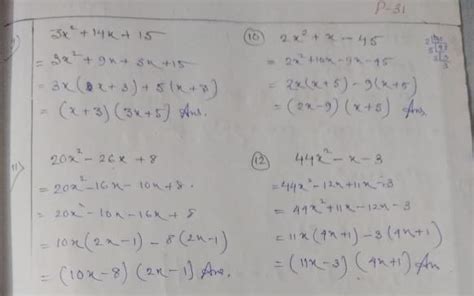 P-31
3x² + 14x + 15
= 3x² + 9x + 5x + 15
= 3x(x + 3) + 5(x + 3)
= (x + 3) (3x + 5) Ans.
(10) 2x² + x - 45
= 2x² + 10x - 9x - 45
= 2x(x + 5) - 9(x + 5)
= (2x - 9) (x + 5) Ans.
11) 20x² - 26x + 8
= 20x² - 16x - 10x + 8
= 20x² - 10x - 16x + 8
= 10x(2x - 1) - 8(2x - 1)
= (10x - 8) (2x - 1) Ans.
(12) 44x² - x - 3
= 44x² - 12x + 11x - 3
= 44x² + 11x - 12x - 3
= 11x(4x + 1) - 3(4x + 1)
= (11x - 3) (4x + 1) Ans.